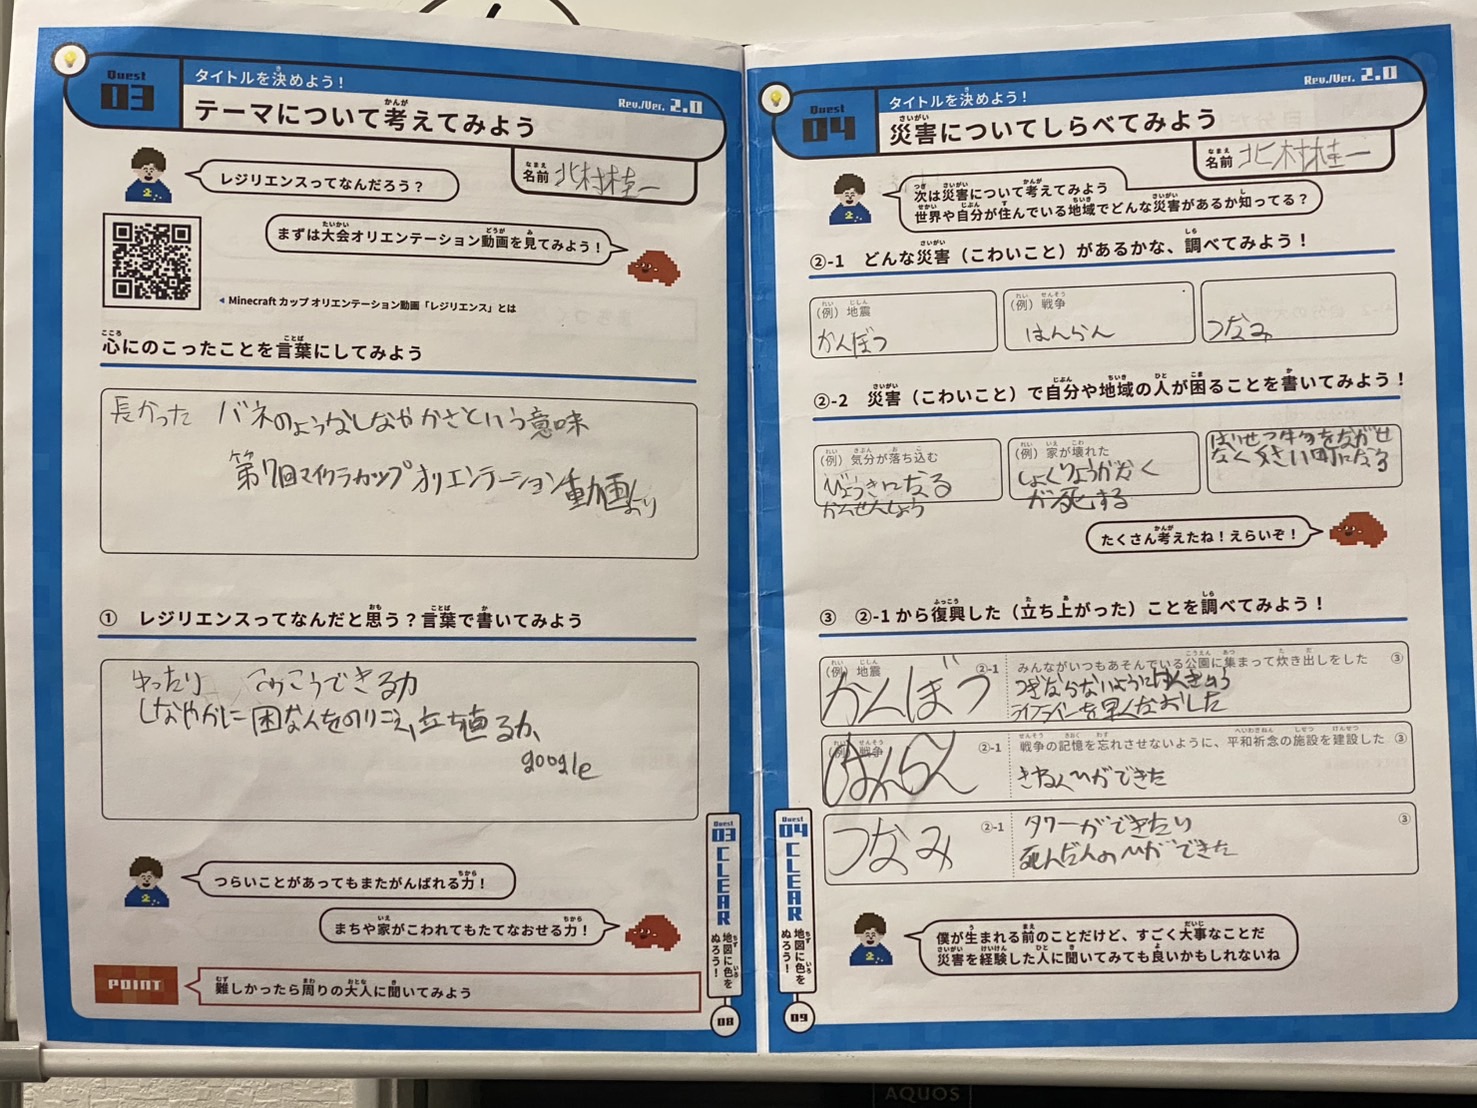 Quest
03
タイトルを決めよう！
テーマについて考えてみよう
Rev./Ver. 2.0
名前 北村桂一
レジリエンスってなんだろう？
まずは大会オリエンテーション動画を見てみよう！
◀ Minecraft カップ オリエンテーション動画「レジリエンス」とは
心にのこったことを言葉にしてみよう
長かった バネのようなしなやかさという意味
第7回マイクラカップ オリエンテーション動画より
① レジリエンスってなんだと思う？言葉で書いてみよう
ゆったり
できる力
しなやかに 困な人をのりこえ、立ち直る力、
google
つらいことがあってもまたがんばれる力！
まちや家がこわれてもたてなおせる力！
POINT
難しかったら周りの大人に聞いてみよう
Quest
03
CLEAR
地図に色を
ぬろう！
08
Quest
04
タイトルを決めよう！
災害についてしらべてみよう
Rev./Ver. 2.0
名前 北村桂一
次は災害について考えてみよう
世界や自分が住んでいる地域でどんな災害があるか知ってる？
②-1 どんな災害（こわいこと）があるかな、調べてみよう！
（例）地震
かんばつ
（例）戦争
はんらん
つなみ
②-2 災害（こわいこと）で自分や地域の人が困ることを書いてみよう！
（例）気分が落ち込む
びょうきになる
かんせんしょう
（例）家が壊れた
しょくりょうがなく
が死する
はいせつ物をながせ
なくくさい町になる
たくさん考えたね！えらいぞ！
③ ②-1 から復興した（立ち上がった）ことを調べてみよう！
（例）地震
かんばつ
②-1
みんながいつもあそんでいる公園に集まって炊き出しをした
③
つぎならないように
ライフラインを早くなおした
（例）戦争
はんらん
②-1
戦争の記憶を忘れさせないように、平和祈念の施設を建設した
③
きねんひができた
つなみ
②-1
タワーができたり
死んだ人のひができた
③
僕が生まれる前のことだけど、すごく大事なことだ
災害を経験した人に聞いてみても良いかもしれないね
Quest
04
CLEAR
地図に色を
ぬろう！
09
AQUOS